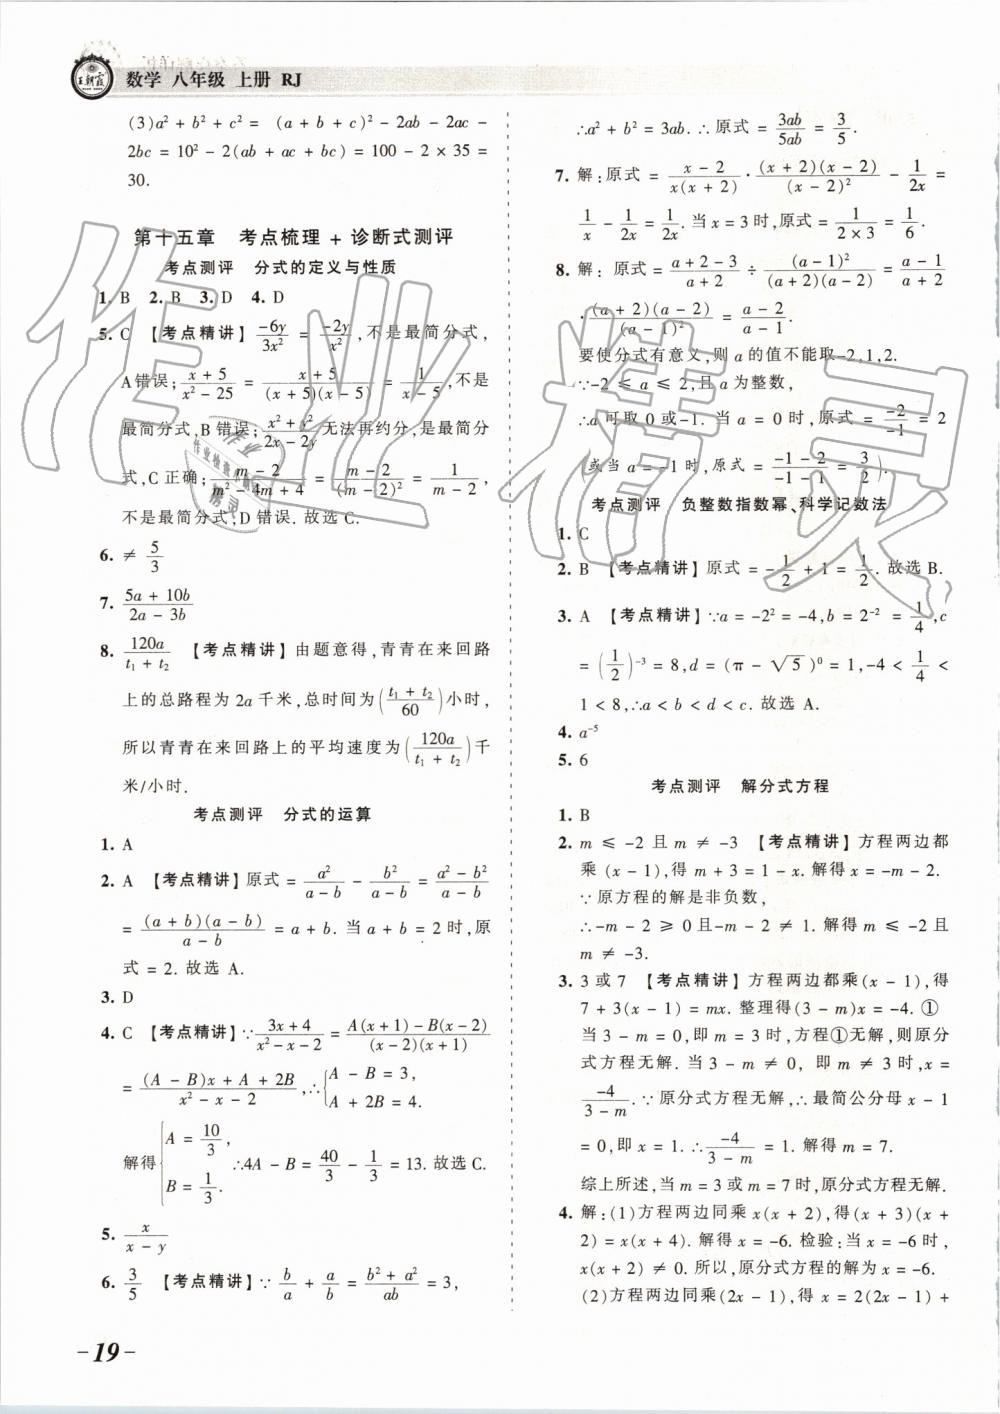 王朝霞 数学 八年级 上册 RJ
(3)a² + b² + c² = (a + b + c)² - 2ab - 2ac -
2bc = 10² - 2(ab + ac + bc) = 100 - 2 × 35 =
30.
第十五章 考点梳理 + 诊断式测评
考点测评 分式的定义与性质
1. B 2. B 3. D 4. D
5. C 【考点精讲】-6y/3x² = -2y/x², 不是最简分式,
A错误; (x + 5)/(x² - 25) = (x + 5)/((x + 5)(x - 5)) = 1/(x - 5), 不是
最简分式, B错误; (x² + y²)/(2x - 2y) 无法再约分, 是最简分
式, C正确; (m - 2)/(m² - 4m + 4) = (m - 2)/(m - 2)² = 1/(m - 2),
不是最简分式, D错误. 故选C.
6. ≠ 5/3
7. (5a + 10b)/(2a - 3b)
8. 120a/(t₁ + t₂) 【考点精讲】由题意得, 青青在来回路
上的总路程为2a千米, 总时间为((t₁ + t₂)/60)小时,
所以青青在来回路上的平均速度为(120a/(t₁ + t₂))千
米/小时.
考点测评 分式的运算
1. A
2. A 【考点精讲】原式 = a²/(a - b) - b²/(a - b) = (a² - b²)/(a - b)
= (a + b)(a - b)/(a - b) = a + b. 当 a + b = 2 时, 原
式 = 2. 故选 A.
3. D
4. C 【考点精讲】∵ (3x + 4)/(x² - x - 2) = (A(x + 1) - B(x - 2))/((x - 2)(x + 1))
= ((A - B)x + A + 2B)/(x² - x - 2), ∴ {A - B = 3, A + 2B = 4.
解得 {A = 10/3, B = 1/3. ∴4A - B = 40/3 - 1/3 = 13. 故选 C.
5. x/(x - y)
6. 3/5 【考点精讲】∵ b/a + a/b = (b² + a²)/ab = 3,
∴a² + b² = 3ab. ∴原式 = 3ab/5ab = 3/5.
7. 解:原式 = (x - 2)/(x(x + 2)) · ((x + 2)(x - 2))/(x - 2)² - 1/2x =
1/x - 1/2x = 1/2x. 当 x = 3 时, 原式 = 1/(2 × 3) = 1/6.
8. 解: 原式 = (a + 2 - 3)/(a + 2) ÷ (a - 1)²/((a + 2)(a - 2)) = (a - 1)/(a + 2)
· ((a + 2)(a - 2))/(a - 1)² = (a - 2)/(a - 1).
要使分式有意义, 则 a 的值不能取-2,1,2.
∵-2 ≤ a ≤ 2, 且 a 为整数,
∴a 可取 0 或-1. 当 a = 0 时, 原式 = -2/-1 = 2
(或当 a = -1 时, 原式 = (-1 - 2)/(-1 - 1) = 3/2).
考点测评 负整数指数幂、科学记数法
1. C
2. B 【考点精讲】原式 = -1/2 + 1 = 1/2. 故选 B.
3. A 【考点精讲】∵a = -2² = -4, b = 2⁻² = 1/4, c
= (1/2)⁻³ = 8, d = (π - √5)⁰ = 1, -4 < 1/4 <
1 < 8, ∴a < b < d < c. 故选 A.
4. a⁻⁵
5. 6
考点测评 解分式方程
1. B
2. m ≤ -2 且 m ≠ -3 【考点精讲】方程两边都
乘 (x - 1), 得 m + 3 = 1 - x. 解得 x = -m - 2.
∵ 原方程的解是非负数,
∴-m - 2 ≥ 0 且-m - 2 ≠ 1. 解得 m ≤ -2 且
m ≠ -3.
3. 3 或 7 【考点精讲】方程两边都乘(x - 1), 得
7 + 3(x - 1) = mx. 整理得(3 - m)x = -4. ①
当 3 - m = 0, 即 m = 3 时, 方程①无解, 则原分
式方程无解. 当 3 - m ≠ 0, 即 m ≠ 3 时, x =
-4/(3 - m). ∵ 原分式方程无解, ∴ 最简公分母 x - 1
= 0, 即 x = 1. ∴ -4/(3 - m) = 1. 解得 m = 7.
综上所述, 当 m = 3 或 m = 7 时, 原分式方程无解.
4. 解:(1)方程两边同乘 x(x + 2), 得(x + 3)(x +
2) = x(x + 4). 解得 x = -6. 检验: 当 x = -6 时,
x(x + 2) ≠ 0. 所以, 原分式方程的解为 x = -6.
(2)方程两边同乘(2x - 1), 得 x = 2(2x - 1) +
-19-
作业精灵